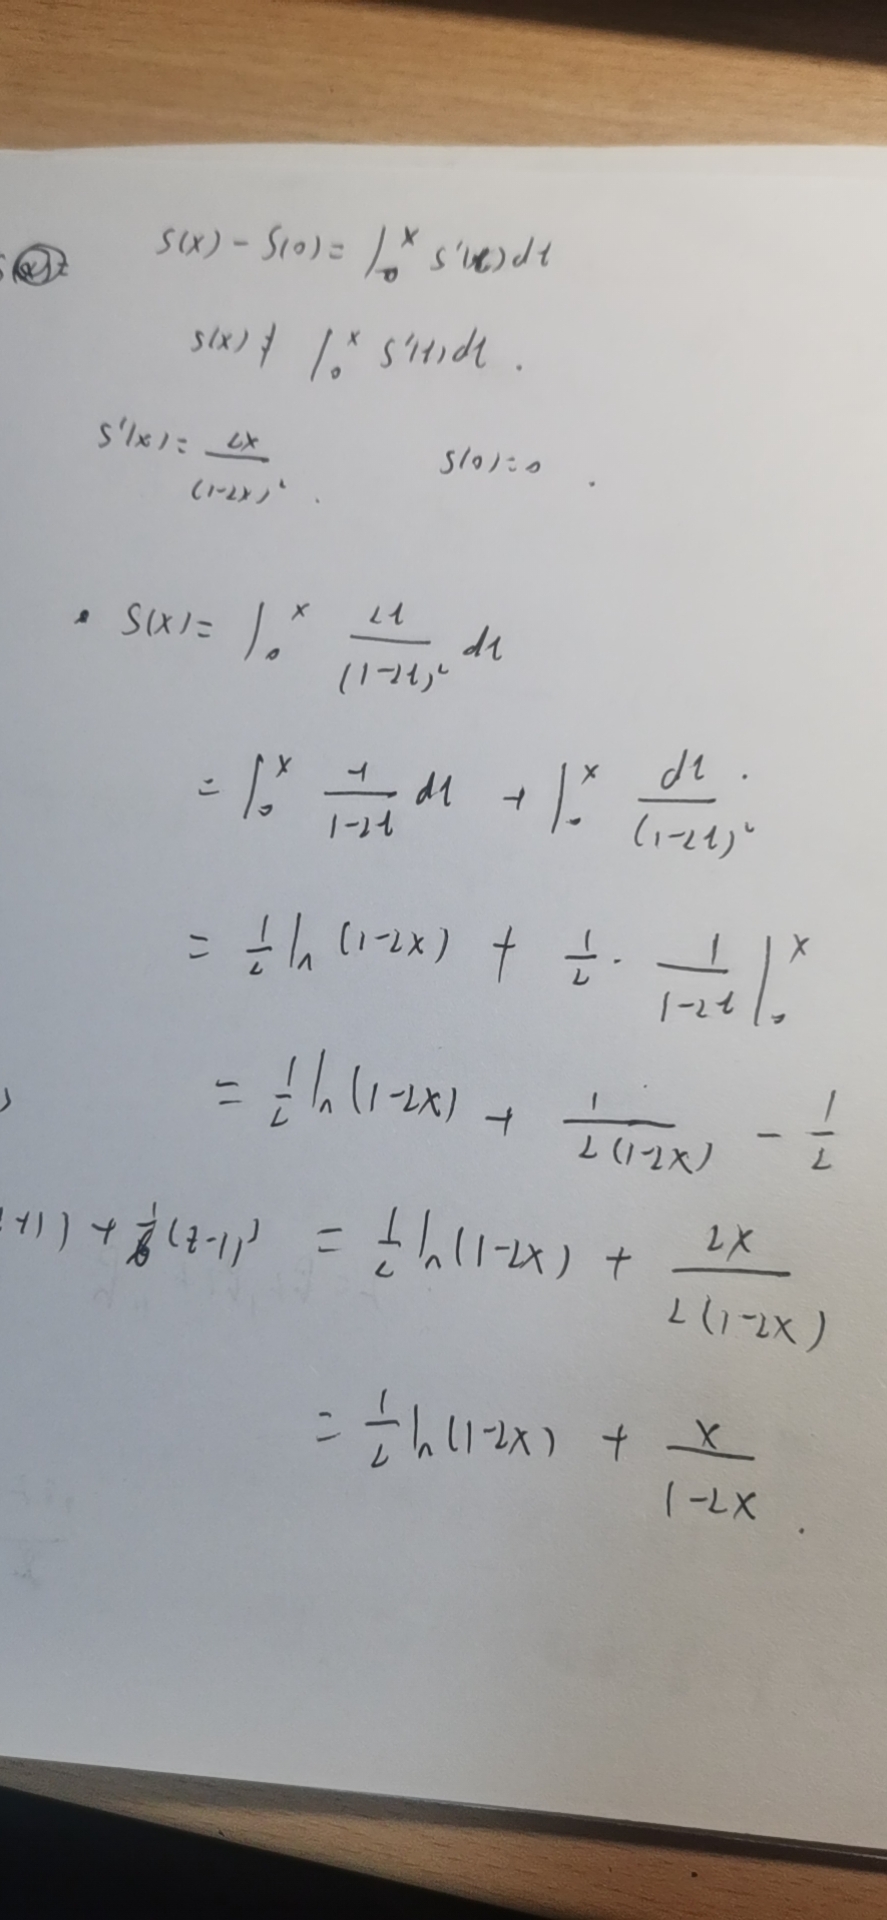 S(x) - S(0) = ∫₀ˣ S'(t) dt
S(x) = ∫₀ˣ S'(t) dt .
S'(x) = 2x/(1-2x)² . S(0) = 0 .
S(x) = ∫₀ˣ 2t/(1-2t)² dt
= ∫₀ˣ -1/(1-2t) dt + ∫₀ˣ dt/(1-2t)² .
= 1/2 ln (1-2x) + 1/2 · 1/(1-2t) |₀ˣ
= 1/2 ln (1-2x) + 1/(2(1-2x)) - 1/2
+1)) + (z-1)³ = 1/2 ln (1-2x) + 2x/(2(1-2x))
= 1/2 ln (1-2x) + x/(1-2x) .